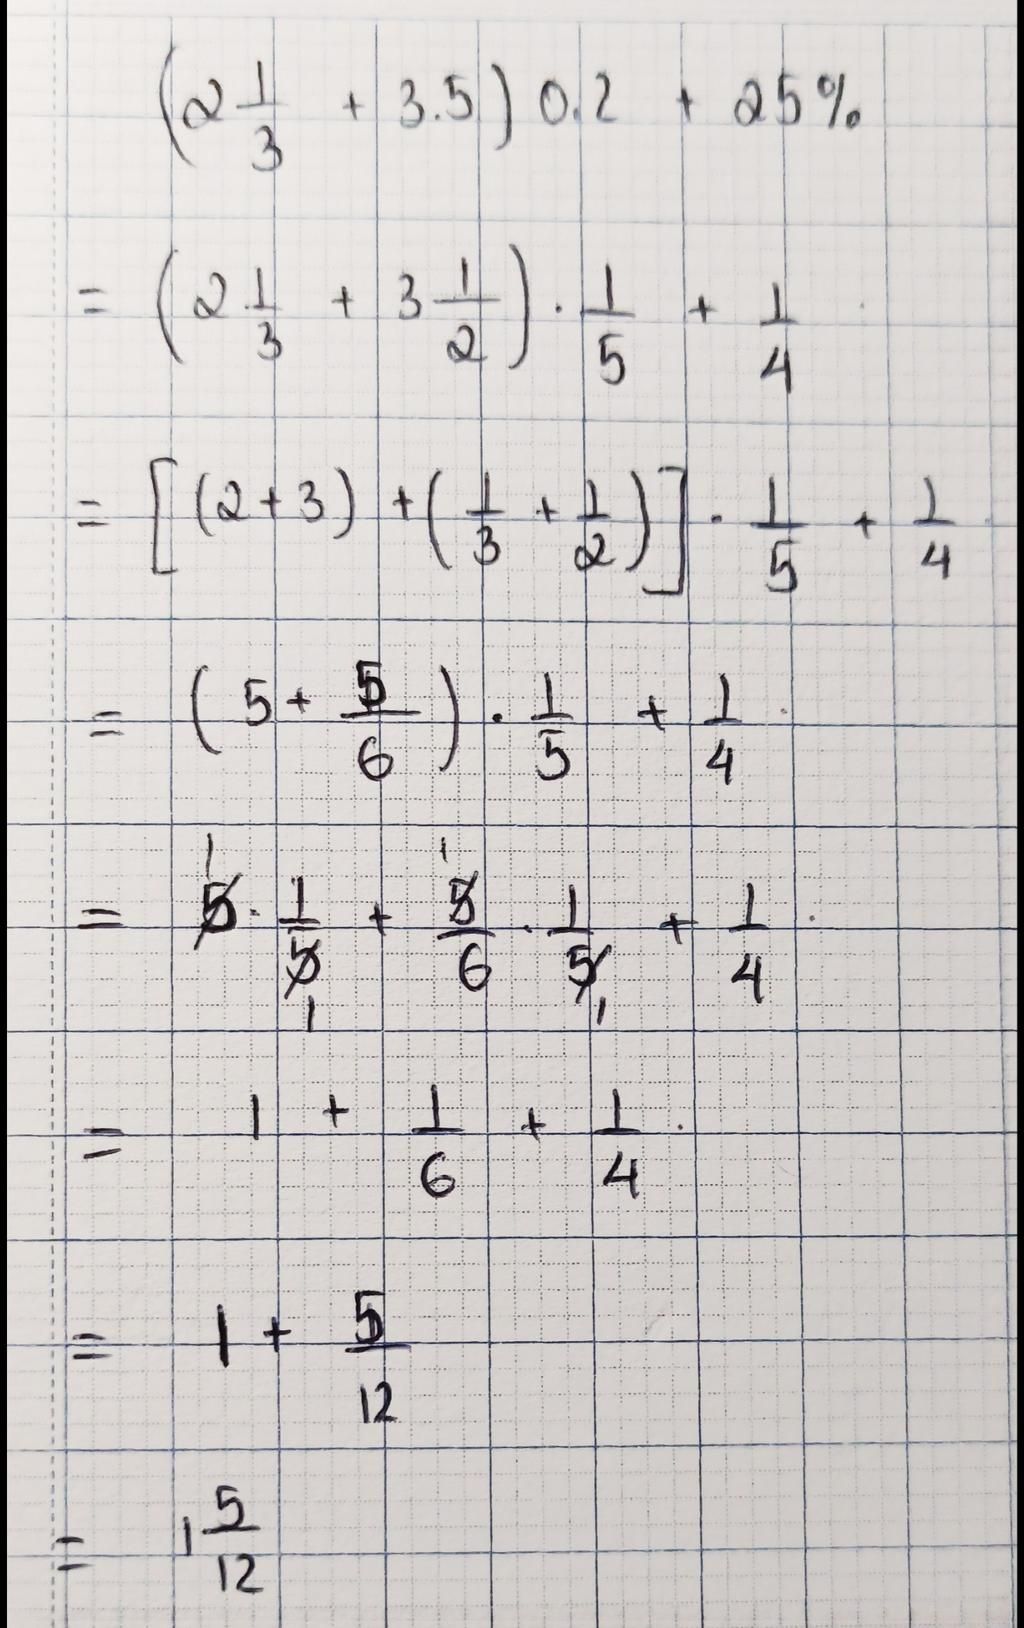 (2 1/3 + 3.5) 0.2 + 25%
= (2 1/3 + 3 1/2) · 1/5 + 1/4
= [(2+3) + (1/3 + 1/2)] · 1/5 + 1/4
= (5 + 5/6) · 1/5 + 1/4
= 5 · 1/5 + 5/6 · 1/5 + 1/4
= 1 + 1/6 + 1/4
= 1 + 5/12
= 1 5/12